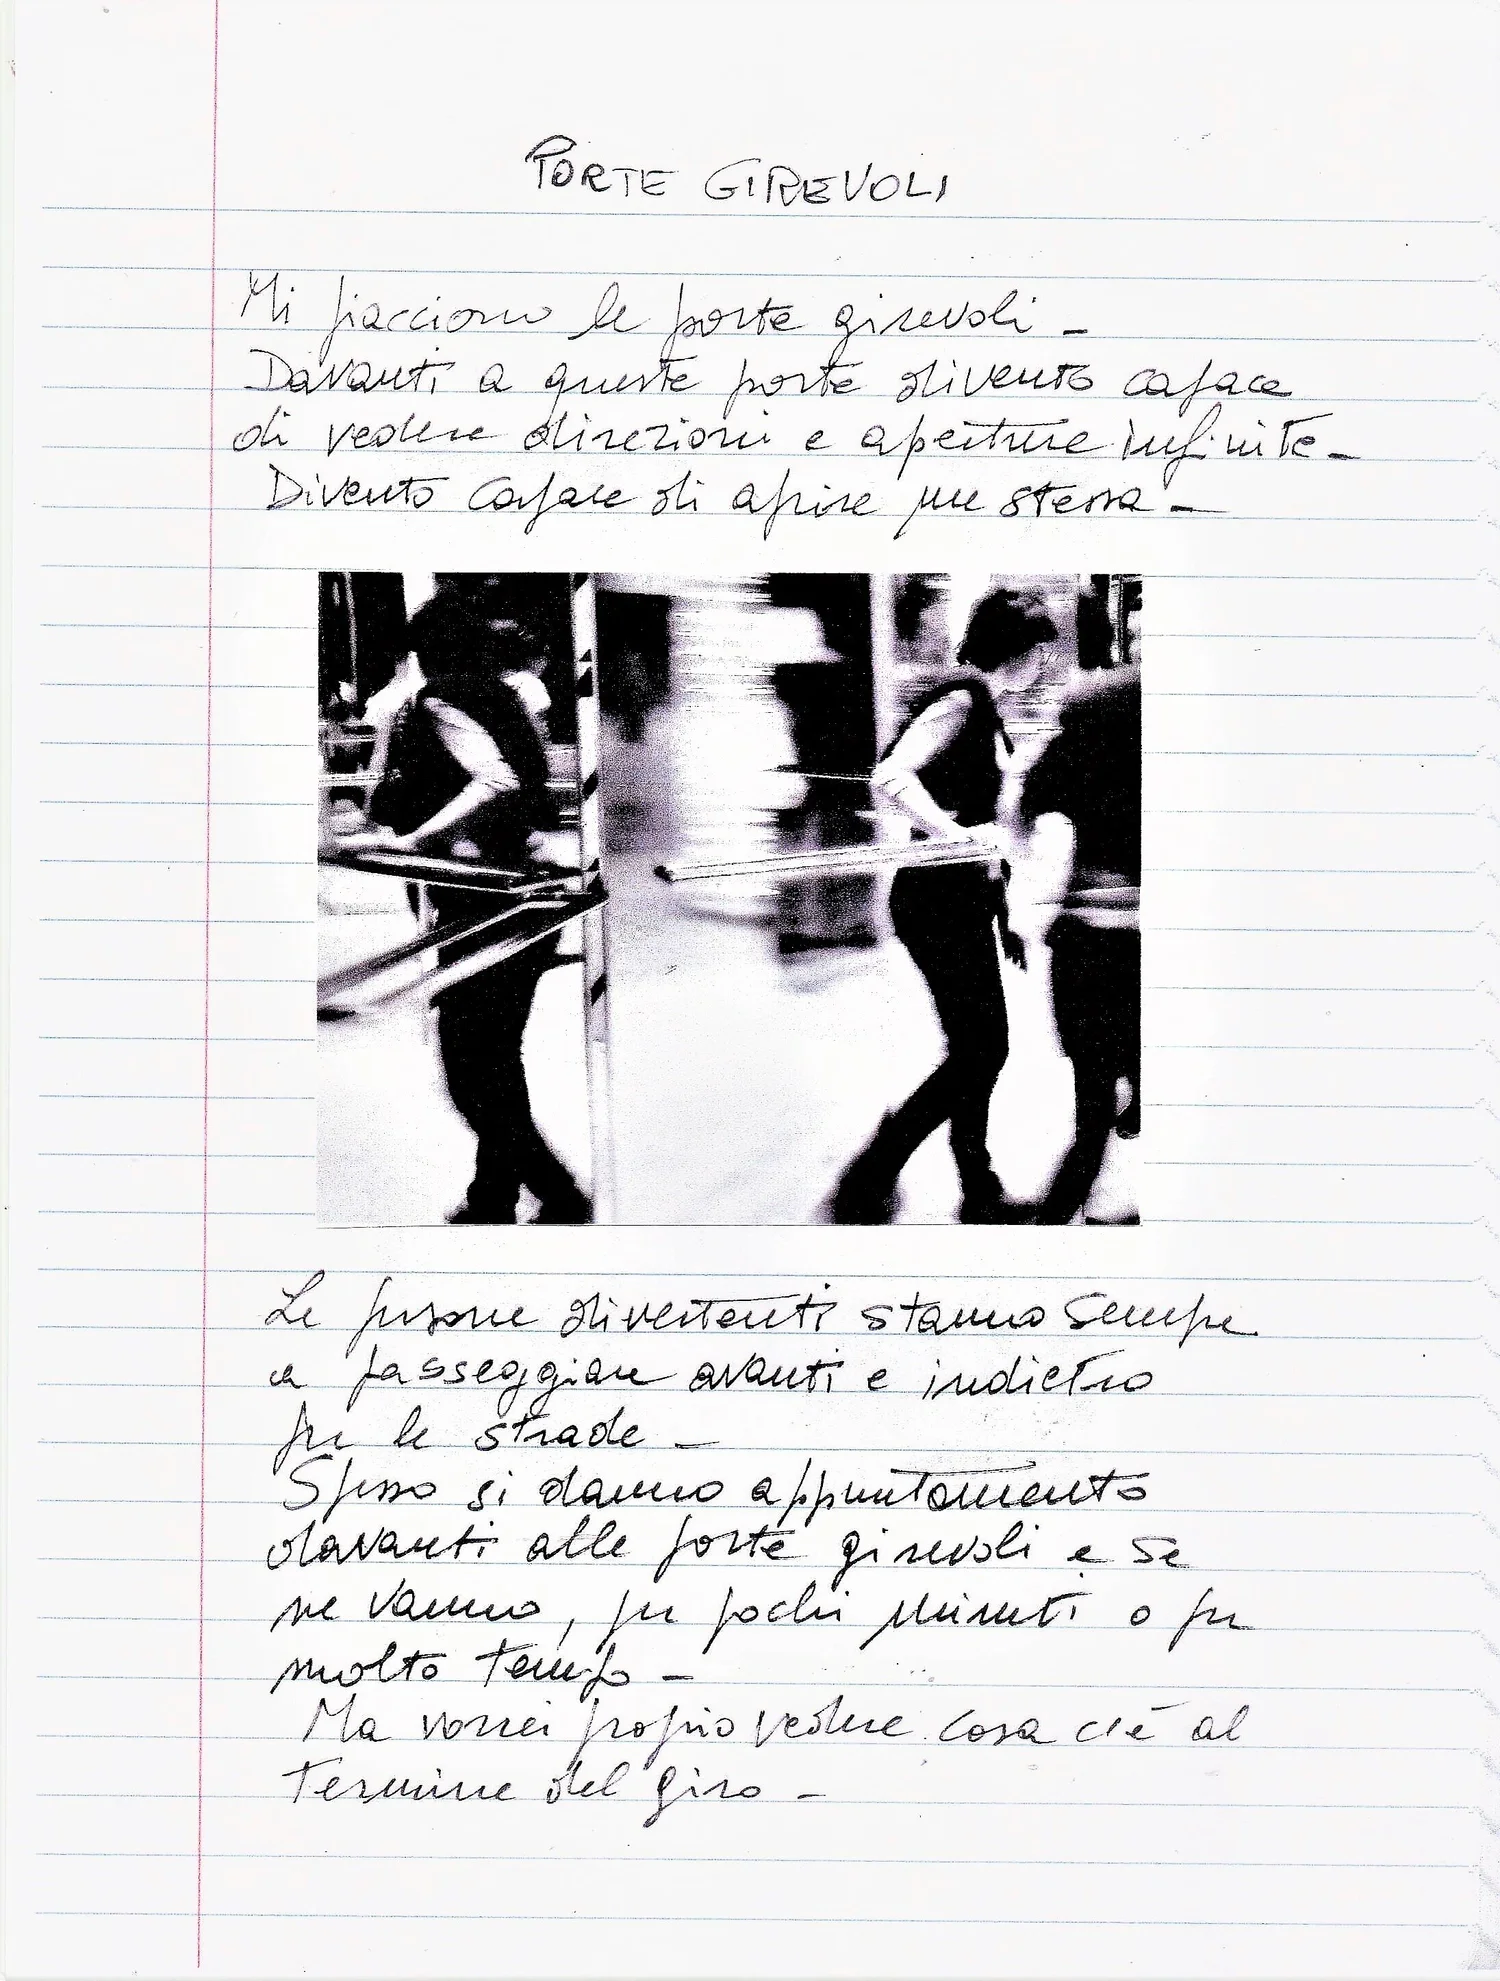 PORTE GIREVOLI
Mi piacciono le porte girevoli -
Davanti a queste porte divento capace
di vedere direzioni e aperture infinite -
Divento capace di aprire me stessa -
Le persone divertenti stanno sempre
a passeggiare avanti e indietro
per le strade -
Spesso si danno appuntamento
davanti alle porte girevoli e se
ne vanno, per pochi minuti o per
molto tempo -
Ma vorrei proprio vedere cosa c'è al
termine del giro -